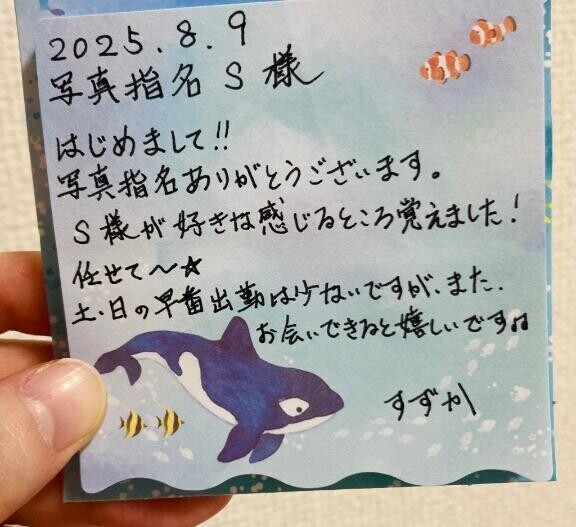 2025.8.9
写真指名 S 様
はじめまして!!
写真指名ありがとうございます。
S 様が好きな感じるところ覚えました!
任せて〜☆
土・日の早番出勤は少ないですが、また、
お会いできると嬉しいです♫
すずか